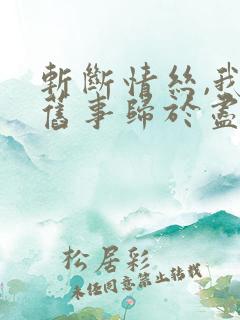 斬斷情絲,我
舊事歸於盡
松居彩
未經同意禁止轉載